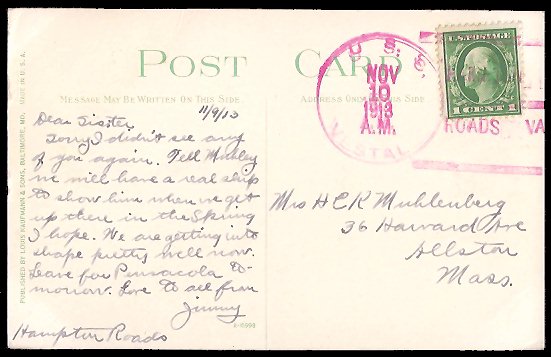 POST CARD
MESSAGE MAY BE WRITTEN ON THIS SIDE
ADDRESS ONLY ON THIS SIDE
MADE IN U.S.A.
PUBLISHED BY LOUIS KAUFMANN & SONS, BALTIMORE, MD.
11/9/13
Dear Sister,
Sorry I didn't see any
of you again. Tell
we will have a real ship
to show him when we get
up there in the Spring
I hope. We are getting into
shape pretty well now.
Leave for Pensacola to-
morrow. Love to all from
Jimmy
Hampton Roads
U. S. S.
NOV
10
1913
A.M.
VESTAL
ROADS VA
U.S. POSTAGE
1 CENT 1
Mrs H E K Muhlenberg
36 Harvard Ave
Allston
Mass.